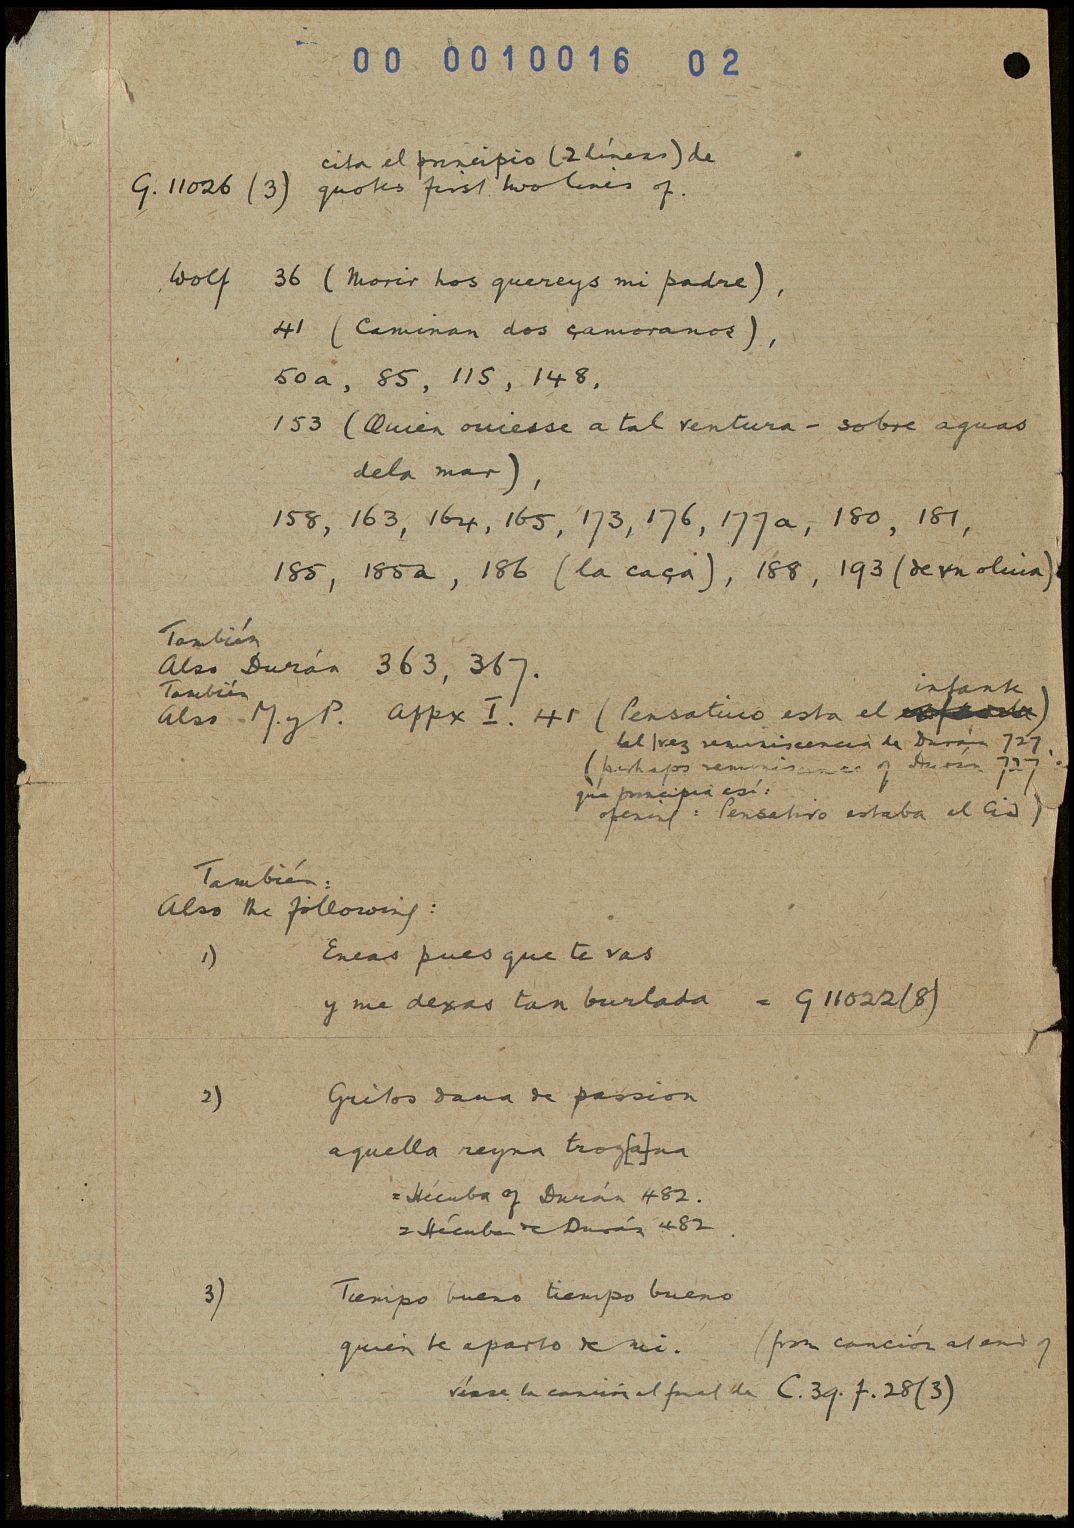 00 0010016 02
cita el principio (2 líneas) de
G. 11026 (3) quotes first two lines of.
Wolf 36 (Morir hos quereys mi padre),
41 (Caminan dos çamoranos),
50a, 85, 115, 148,
153 (Quien ouiesse a tal ventura - sobre aguas
dela mar),
158, 163, 164, 165, 173, 176, 177a, 180, 181,
185, 185a, 186 (la caça), 188, 193 (de vn oliuia)
También
Also Durán 363, 367.
También
infante
Also M. y P. Appx I. 41 (Pensatiuo esta el)
tal vez reminiscencia de Durán 727.
(perhaps reminiscence of Durán 727
que principia así:
opening: Pensativo estaba el Cid)
También:
Also the following:
1) Eneas pues que te vas
y me dexas tan burlada = G 11022(8)
2) Gritos daua de passion
aquella reyna troy[a]na
= Hécuba of Durán 482.
= Hécuba de Durán 482.
3) Tiempo bueno tiempo bueno
quien te aparto de mi. (from canción at end of
véase la canción al final de C. 39. f. 28(3)